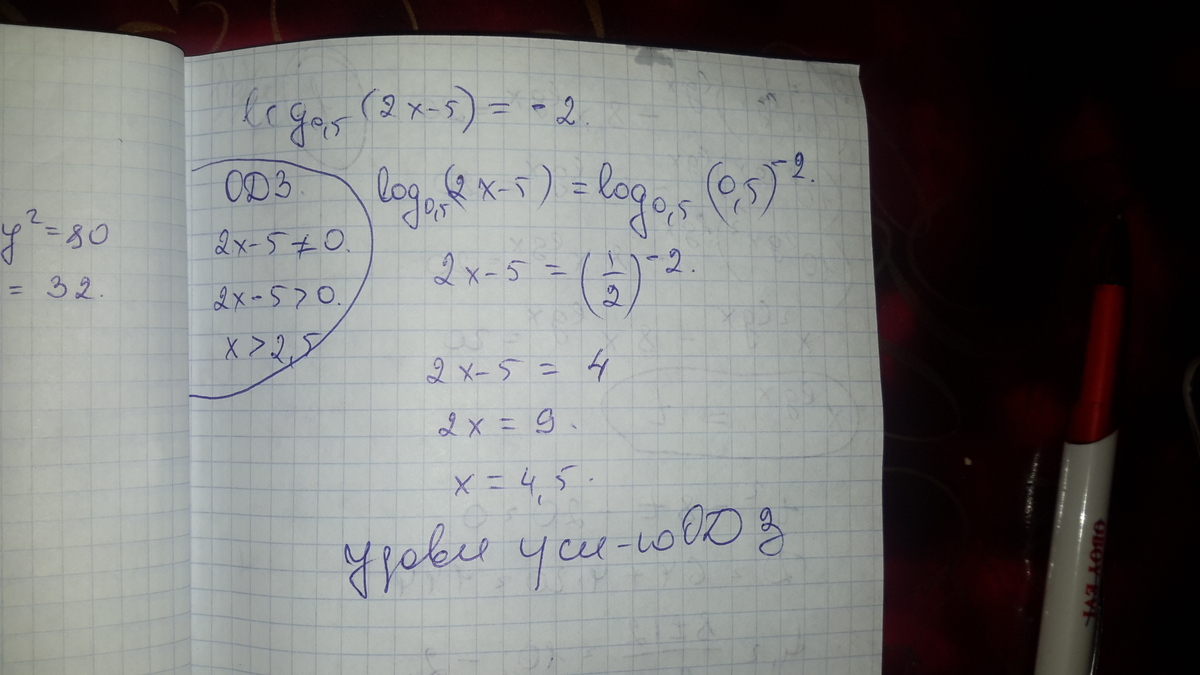 y² = 80
= 32.
log₀,₅ (2x-5) = -2.
ОДЗ.
2x-5 ≠ 0.
2x-5 > 0.
x > 2,5
log₀,₅(2x-5) = log₀,₅ (0,5)⁻².
2x-5 = (1/2)⁻².
2x-5 = 4
2x = 9.
x = 4,5.
удовл усл-ю ОДЗ